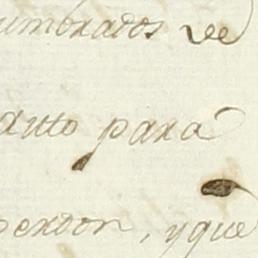 umbrados de
auto para
perdon, y que